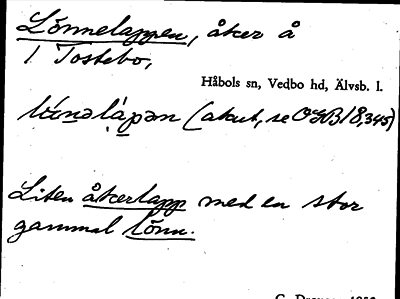 Lönnelappen, åker å
1 Tostebo,
Håbols sn, Vedbo hd, Älvsb. l.
(akut, se OGB 18,345)
Liten åkerlapp med en stor
gammal lönn.